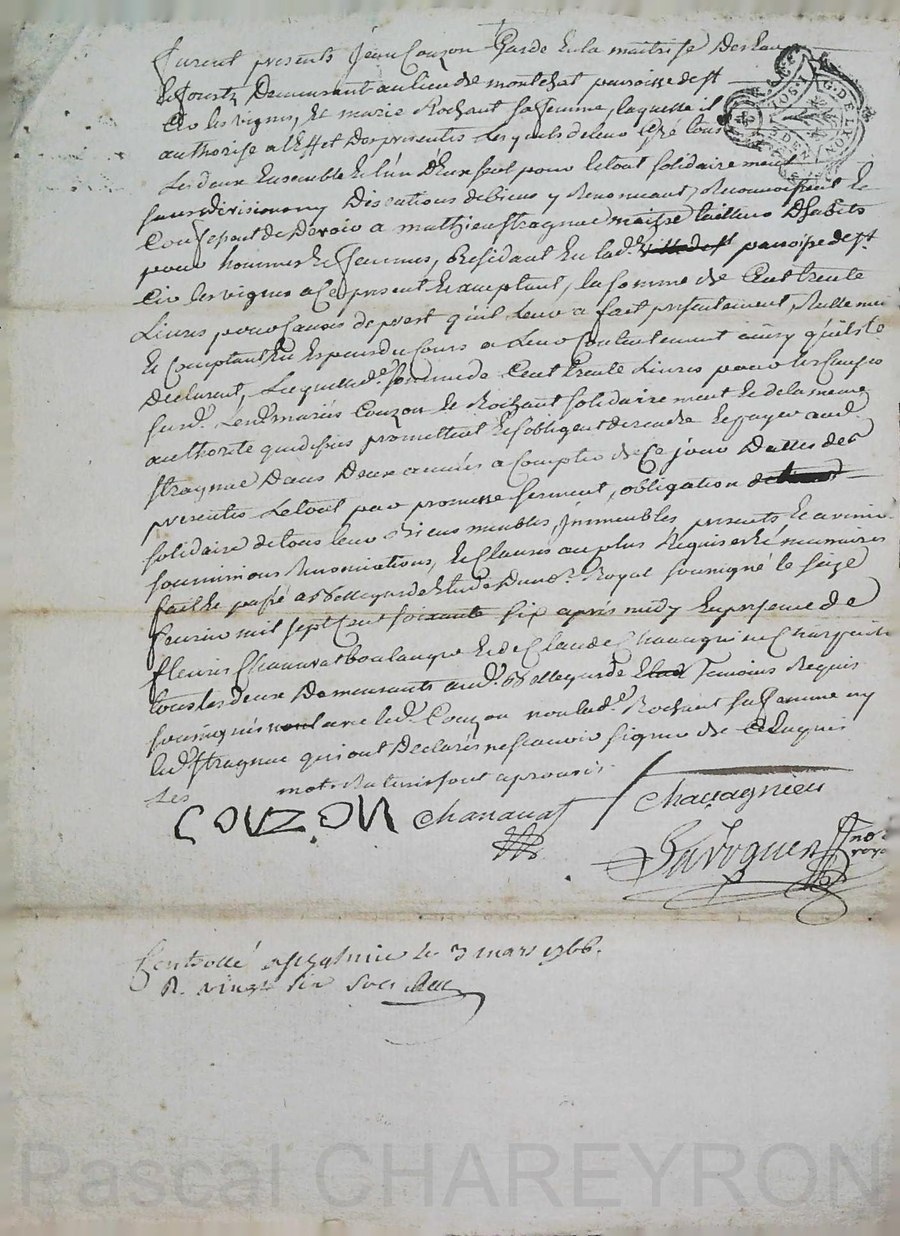 furent presents Jean Couzon Garde En la maitrise Des Eaux
Et forets Demeurant au lieu de montchat paroisse de st
Cir les vignes, Et marie Rochant sa femme, laquelle il
authorise a l'Effet Des presentes Lesquels de leur Gré tous
Les deux Ensemble Et l'un D'Eux seul pour le tout solidairement
sans division ny Discutions de biens y Renonceant, Reconnoissent Et
Confessent de Devoir a mathieu stragnue maitre tailleur D'habits
pour hommes Et femmes, Residant En lad. paroisse de st
Cir les vignes a Ce present Et acceptant, la somme de Cent trente
Livres pour Cause de prest qu'il Leur a fait presentement, Reellement
Et Comptant En Especes du Cours a Leur Contentement ainsy qu'ils le
Declarent, Laquelle d. somme de Cent trente Livres pour les Causes
susd. Lesd. mariés Couzon Et Rochant solidairement Et de la meme
authorité que dessus promettent Et s'obligent de rendre Et payer aud.
stragnue Dans Deux années a Compter de Ce jour Datte des
presentes Le tout par promesse serment, obligation
solidaire de tous leur Biens meubles, immeubles, presents Et a venir
soumissions Renonciations, Et Clauses au plus Requises Et necessaires
fait Et passé a Bellegarde Etude Du no.re Royal soussigné le seize
fevrier mil sept Cent soixante six apres midy En presence de
fleuris Chanavat boulanger Et de Claude Chavagnieu Charpentier
tous les deux Demeurants aud. Bellegarde Temoins Requis
soussignés avec led. Couzon non lad. Rochant sa femme ny
led. stragnue qui ont Declarés ne scavoir signer de Ce Enquis
Les mots Raturés sont aprouvés
COUZON Chanavat Chavagnieu
no.re royal
Controllé a le 3 mars 1766.
R. vingt six sols
G. DE LYON
Pascal CHAREYRON